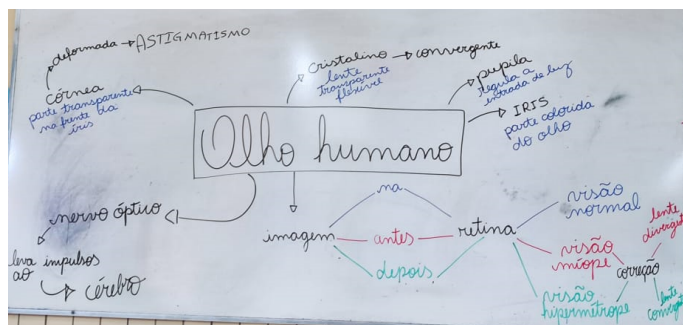 deformada → ASTIGMATISMO
córnea
parte transparente
na frente da
íris
cristalino → convergente
lente
transparente
flexível
pupila
regula a
entrada de luz
IRIS
parte colorida
do olho
Olho humano
nervo óptico
leva impulsos
ao
cérebro
imagem
na
antes
depois
retina
visão
normal
visão
míope
visão
hipermétrope
correção
lente
lente